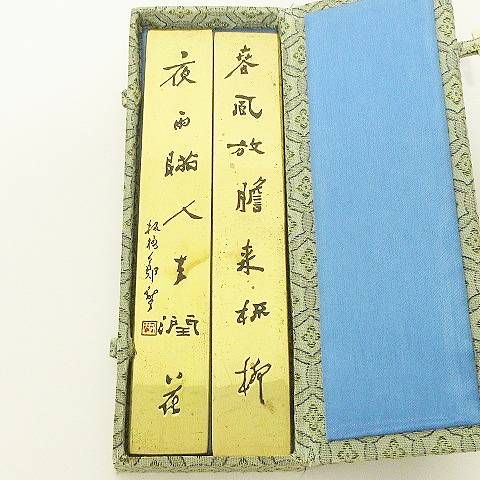 春风放膽来梳柳
夜雨瞞人去潤花
板橋鄭燮